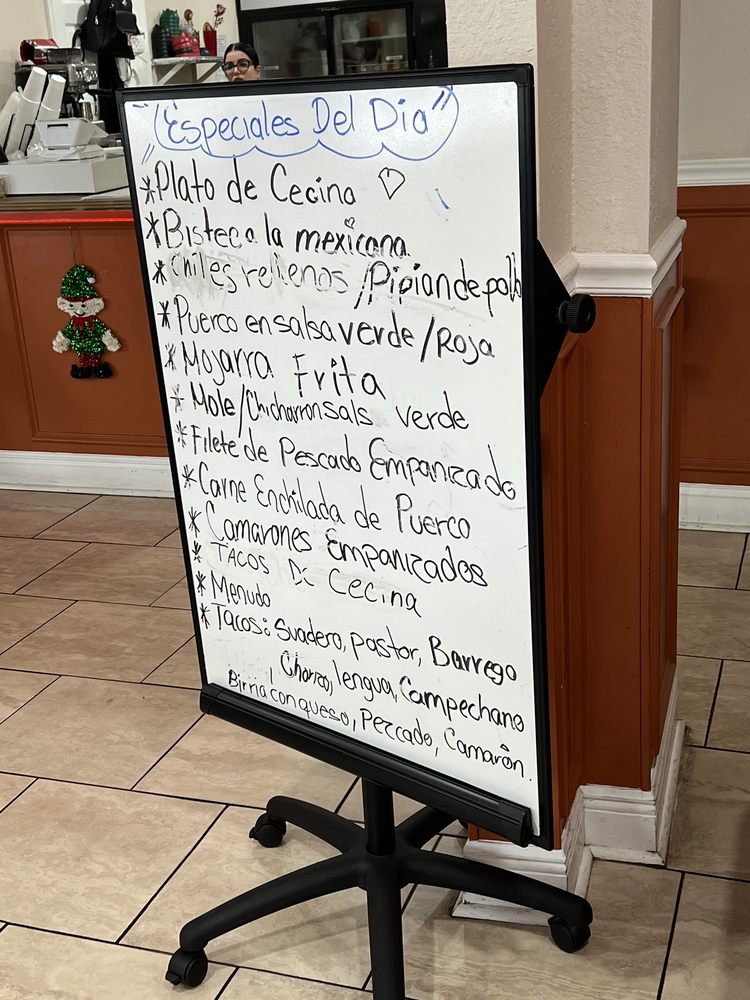 "Especiales Del Dia"
*Plato de Cecina
*Bistec a la mexicana
*Chiles rellenos /Pipian de pollo
*Puerco en salsa verde/Roja
*Mojarra Frita
*Mole/Chicharron sals verde
*Filete de Pescado Empanizado
*Carne Enchilada de Puerco
*Camarones Empanizados
*TACOS De Cecina
*Menudo
*Tacos: Suadero, pastor, Barrego
Chorizo, lengua, Campechano
Birria con queso, Pezcado, Camarón.